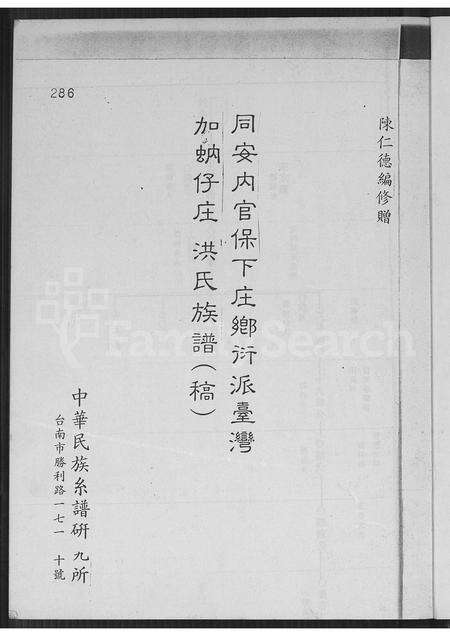 286
陳仁德編修贈
同安內官保下庄鄉衍派臺灣
加蚋仔庄 洪氏族譜(稿)
中華民族系譜研九所
台南市勝利路一七一 十號
FamilySearch